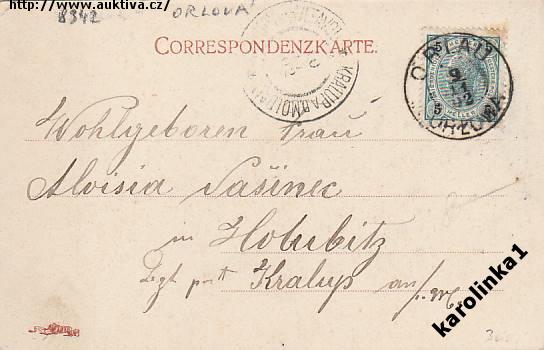 http://www.auktiva.cz/
8342
ORLOVA
CORRESPONDENZKARTE.
KRALUP A.D.MOLDAU
ORLAU
9
11
02
ORLOWA
Wohlgeboren Frau
Aloisia Vašinec
in Holubitz
Kralup an/
karolinka1